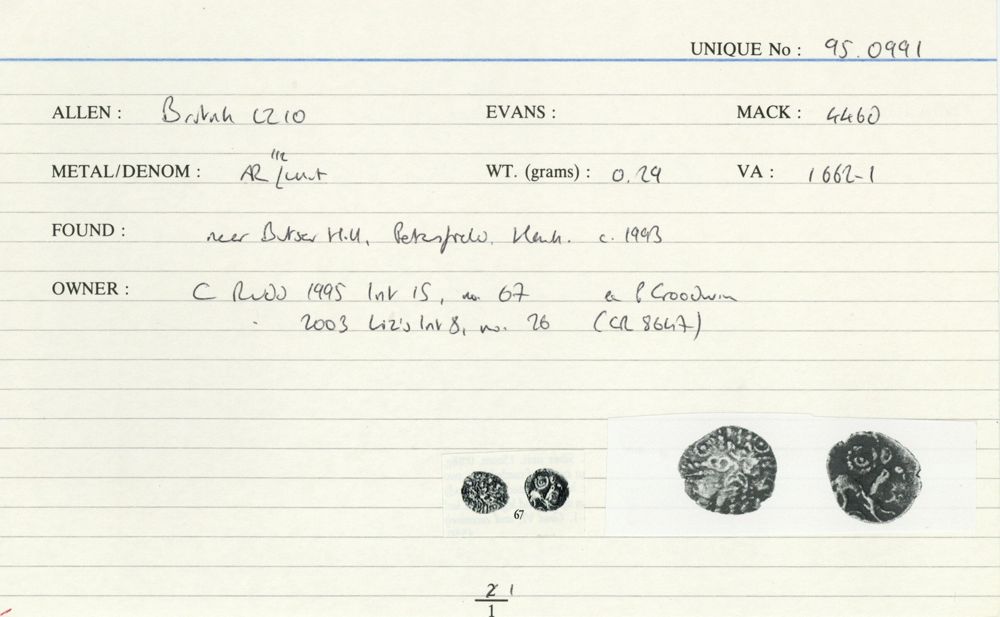 UNIQUE No : 95.0991
ALLEN : British LZ10 EVANS : MACK : 446D
METAL/DENOM : AR unit WT. (grams) : 0.29 VA : 1662-1
FOUND : near Butser Hill, Petersfield, Hants. c. 1993
OWNER : C Rudd 1995 List 15, no. 67 ex P Goodwin
2003 Liz's List 8, no. 26 (CR 8647)
67
1
1